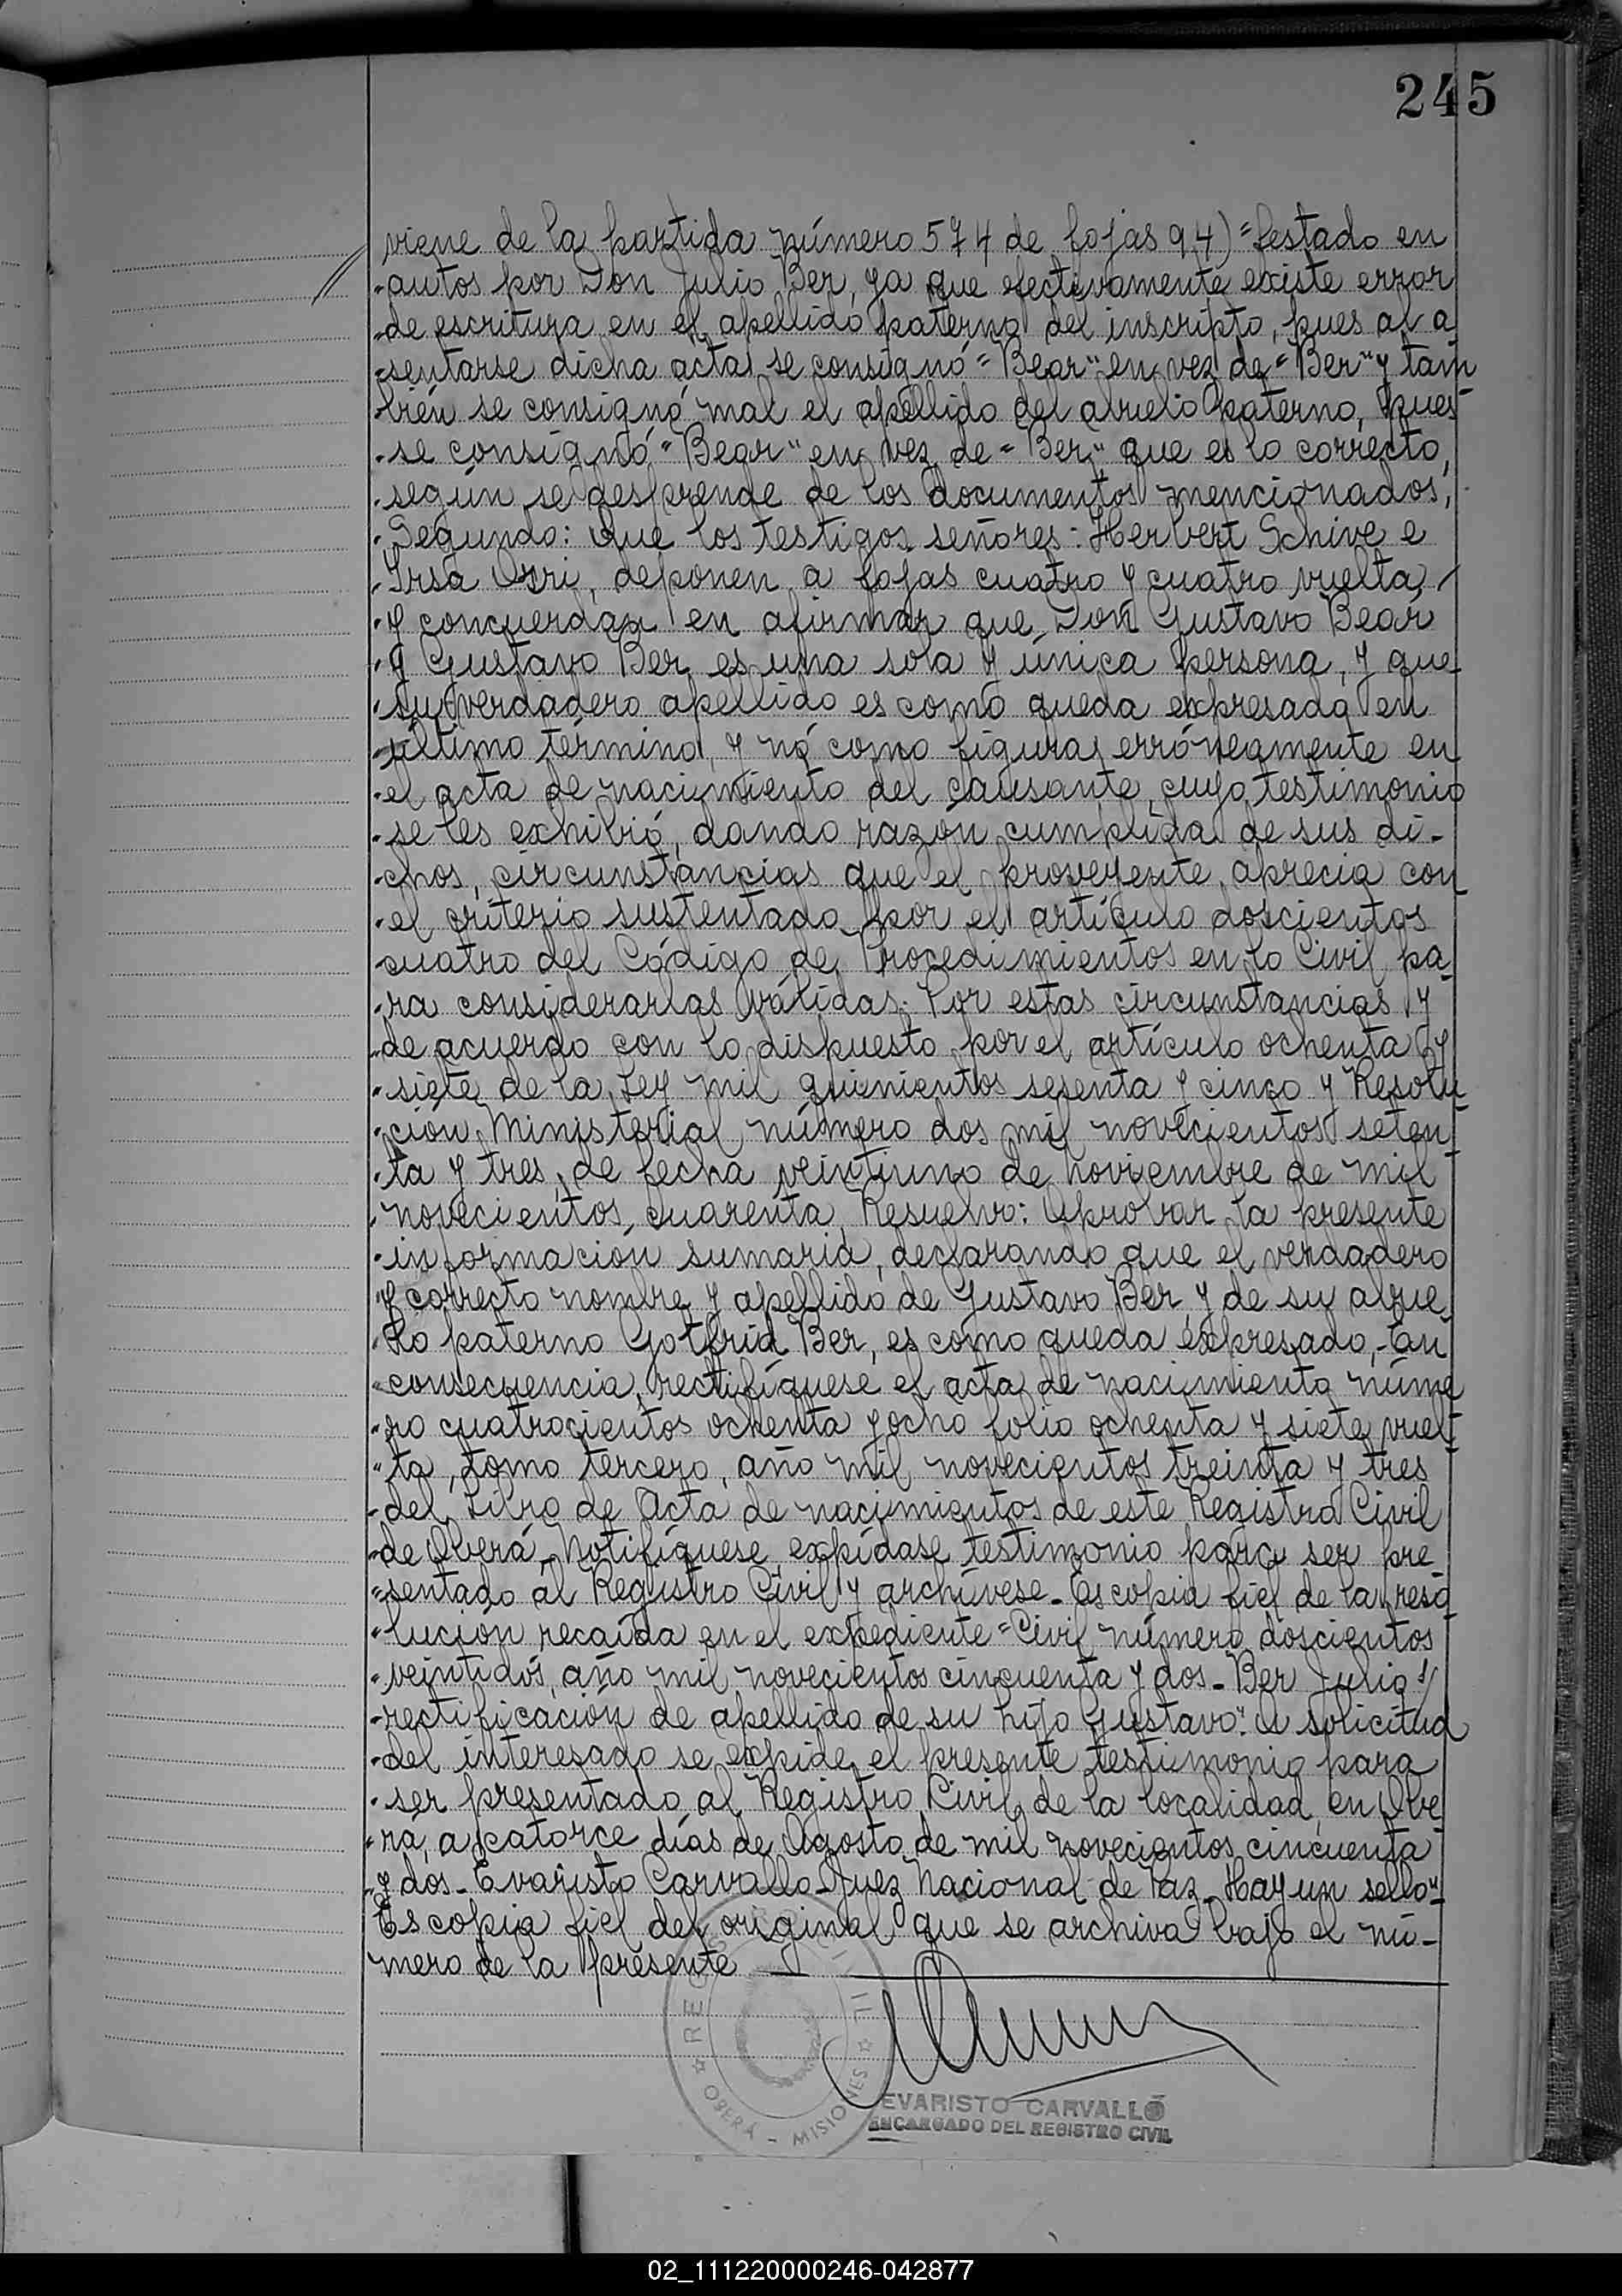 245
viene de la partida número 574 de fojas 94) = festado en
"autos por Don Julio Ber, ya que efectivamente existe error
"de escritura en el apellido paterno del inscripto, pues al a
"sentarse dicha acta se consignó = Bear" en vez de = Ber" y tam
"bién se consignó mal el apellido del abuelo paterno, pues
"se consignó = Bear" en vez de = Ber", que es lo correcto,
"según se desprende de los documentos mencionados,
"Segundo: Que los testigos señores: Herbert Schive e
"Irsa Osri, deponen a fojas cuatro y cuatro vuelta,
"y concuerdan en afirmar que Don Gustavo Bear
"y Gustavo Ber es una sola y única persona, y que
"su verdadero apellido es como queda expresado en
"último término, y nó como figura erróneamente en
"el acta de nacimiento del causante, cuyo testimonio
"se les exhibió, dando razón cumplida de sus di-
"chos, circunstancias que el proveyente aprecia con
"el criterio sustentado por el artículo doscientos
cuatro del Código de Procedimientos en lo Civil pa
"ra considerarlas válidas. Por estas circunstancias y
"de acuerdo con lo dispuesto por el artículo ochenta y
"siete de la Ley mil quinientos sesenta y cinco y Resolu
"ción Ministerial número dos mil novecientos seten
"ta y tres, de fecha veintiuno de noviembre de mil
"novecientos cuarenta, Resuelvo: Aprobar la presente
"información sumaria, declarando que el verdadero
"y correcto nombre y apellido de Gustavo Ber y de su abue
"lo paterno Gotfrid Ber, es como queda expresado,- En
"consecuencia, rectifíquese el acta de nacimiento núme
"ro cuatrocientos ochenta y ocho folio ochenta y siete vuel
"ta, tomo tercero, año mil novecientos treinta y tres
"del Libro de Acta de nacimientos de este Registro Civil
"de Oberá. Notifíquese, expídase testimonio para ser pre
"sentado al Registro Civil y archívese. Es copia fiel de la reso
"lución recaída en el expediente = Civil número doscientos
"veintidós, año mil novecientos cincuenta y dos - Ber Julio s/
"rectificación de apellido de su hijo Gustavo". A solicitud
"del interesado se expide el presente testimonio para
"ser presentado al Registro Civil de la localidad, en Obe
"rá, a catorce días de Agosto de mil novecientos cincuenta
"y dos - Evaristo Carvallo - Juez Nacional de Paz - Hay un sello"-
Es copia fiel del original que se archiva bajo el nú-
mero de la presente
REGISTRO CIVIL
OBERÁ - MISIONES
EVARISTO CARVALLO
ENCARGADO DEL REGISTRO CIVIL
02_111220000246-042877